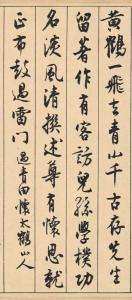 黃鶴一飛去青山千古存
留著作有客訪兒孫學樸功
名淡風清撰述尊有懷思就
正布鼓過雷門 過青田懷太鶴山人